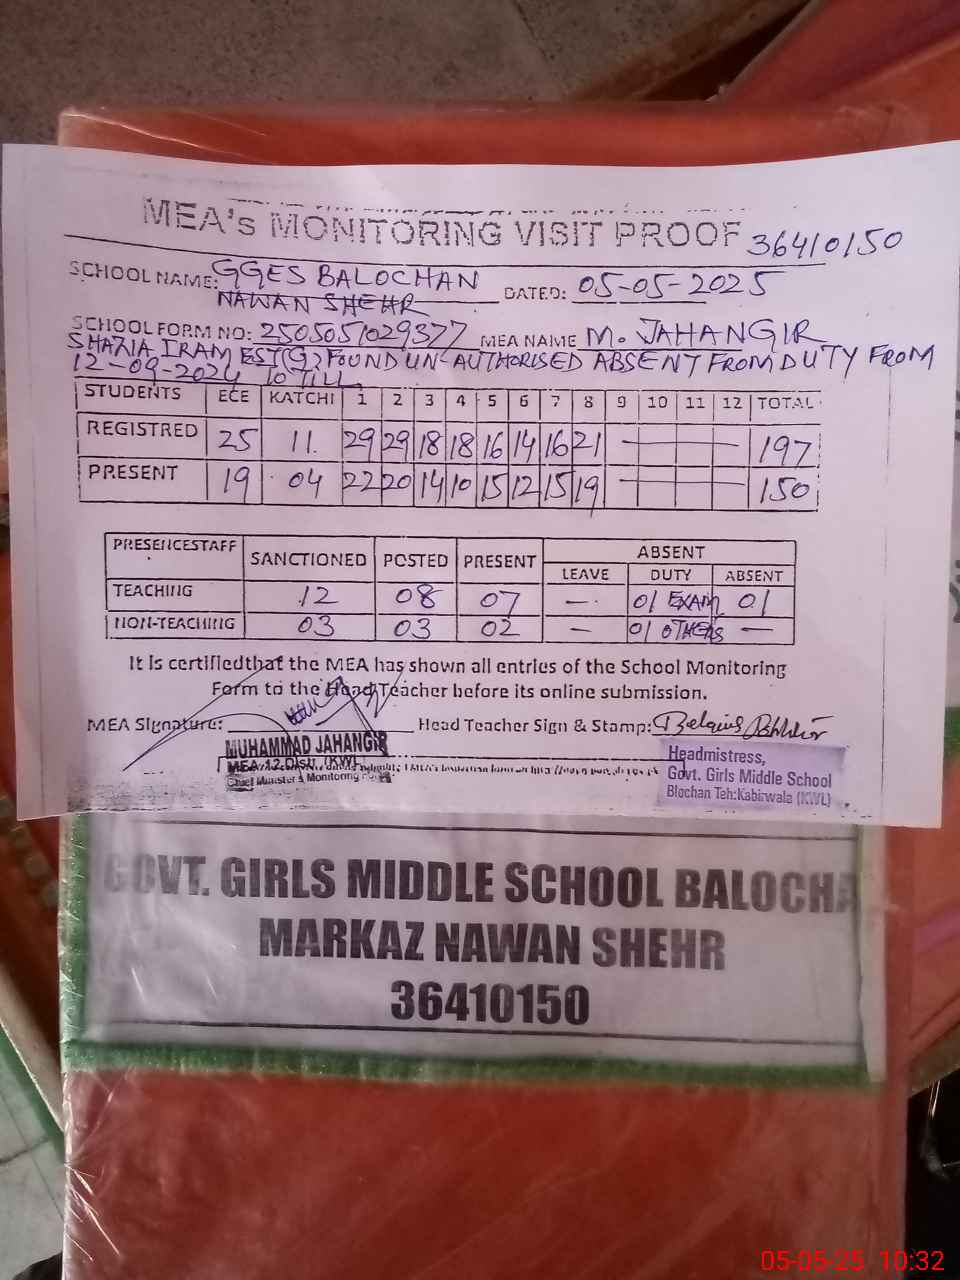 MEA's MONITORING VISIT PROOF 36410150
SCHOOL NAME: GGES BALOCHAN DATED: 05-05-2025
NAWAN SHEHR
SCHOOL FORM NO: 2505051029377 MEA NAME M. JAHANGIR
SHAZIA IRAM EST(G) FOUND UN-AUTHORISED ABSENT FROM DUTY FROM
12-09-2024 TO TILL
STUDENTS ECE KATCHI 1 2 3 4 5 6 7 8 9 10 11 12 TOTAL
REGISTRED 25 11 29 29 18 18 16 14 16 21 197
PRESENT 19 04 22 20 14 10 15 12 15 19 150
PRESENCESTAFF SANCTIONED POSTED PRESENT ABSENT
LEAVE DUTY ABSENT
TEACHING 12 08 07 — 01 EXAM 01
NON-TEACHING 03 03 02 — 01 OTHERS —
It is certifiedthat the MEA has shown all entries of the School Monitoring
Form to the Head Teacher before its online submission.
MEA Signature: Head Teacher Sign & Stamp:
MUHAMMAD JAHANGIR
MEA 12 Distt. (KWL)
Chief Minister's Monitoring
Headmistress,
Govt. Girls Middle School
Blochan Teh:Kabirwala (KWL)
GOVT. GIRLS MIDDLE SCHOOL BALOCHA
MARKAZ NAWAN SHEHR
36410150
05-05-25 10:32